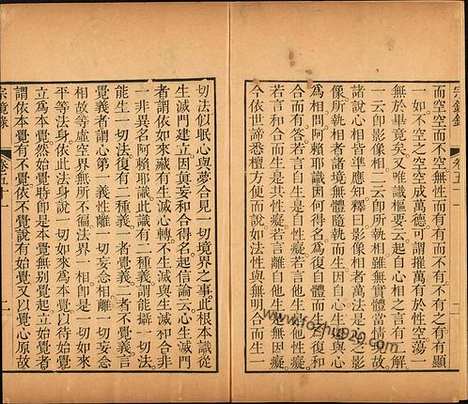 宗鏡錄 卷五十一
而空空而不空無性而有有而不有不有之有有顯
一如不空之空空成萬德可謂摧萬有於性空蕩一
無於畢竟矣又唯識樞要云起自心相之言有二解
一云卽影像相二云卽所執相雖無實體當情現故
諸說心相皆準應知釋曰影像相者萬法是心之影
像所執相者諸境無體隨執而生因自心生還與心
爲相問阿賴耶識因何得名爲復自體而生爲復和
合而有答若言自生是自性癡若言他生是他性癡
若言和合生是共性癡若言離自他生是無因癡
今依世諦悉檀方便而說如法性與無明合而生一
切法似眠心與夢合見一切境界之事此根本識從
生滅門建立因眞妄和合得名起信論云心生滅門
者謂依如來藏有生滅心轉不生滅與生滅和合非
一非異名阿賴耶識此識有二種義謂能攝一切法
能生一切法復有二種義一者覺義二者不覺義言
覺義者謂心第一義性離一切妄念相離一切妄念
相故等虛空界無所不徧法界一相卽是一切如來
平等法身依此法身說一切如來爲本覺以待始覺
立爲本覺然始覺時卽是本覺無別覺起立始覺者
謂依本覺有不覺依不覺說有始覺又以覺心源故
宗鏡錄 卷五十一 二
www.fozhu920.com